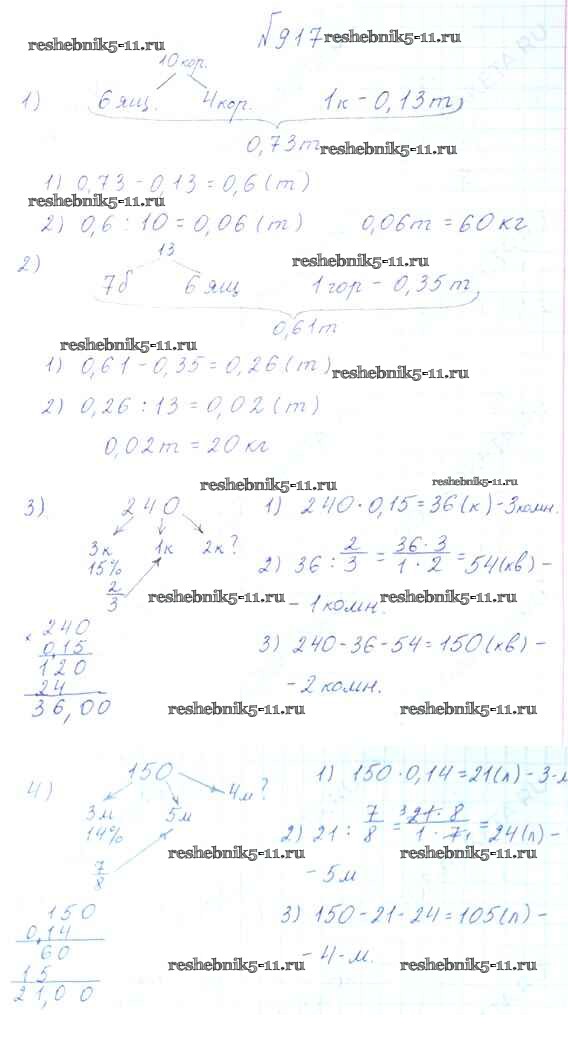 №917 reshebnik5-11.ru
reshebnik5-11.ru
10 кор.
1) 6 ящ. 4 кор. 1к - 0,13 т,
0,73 т
reshebnik5-11.ru
1) 0,73 - 0,13 = 0,6 (т)
reshebnik5-11.ru
2) 0,6 : 10 = 0,06 (т) 0,06 т = 60 кг
13
2) reshebnik5-11.ru
7б 6 ящ 1 гор - 0,35 т,
0,61 т
reshebnik5-11.ru
1) 0,61 - 0,35 = 0,26 (т)
reshebnik5-11.ru
2) 0,26 : 13 = 0,02 (т)
0,02 т = 20 кг
reshebnik5-11.ru reshebnik5-11.ru
3) 240
3к 1к 2к?
15%
2/3
240
× 0,15
120
24
36,00
1) 240 · 0,15 = 36 (к) - 3 комн.
2) 36 : 2/3 = 36·3/1·2 = 54 (кв) -
- 1 комн.
reshebnik5-11.ru reshebnik5-11.ru
3) 240 - 36 - 54 = 150 (кв) -
- 2 комн.
reshebnik5-11.ru reshebnik5-11.ru
4) 150
3м 5м 4м?
14%
7/8
150
0,14
60
15
21,00
1) 150 · 0,14 = 21 (л) - 3-м
2) 21 : 7/8 = 21·8/1·7 = 24 (л) -
- 5м
reshebnik5-11.ru reshebnik5-11.ru
3) 150 - 21 - 24 = 105 (л) -
- 4-м.
reshebnik5-11.ru reshebnik5-11.ru